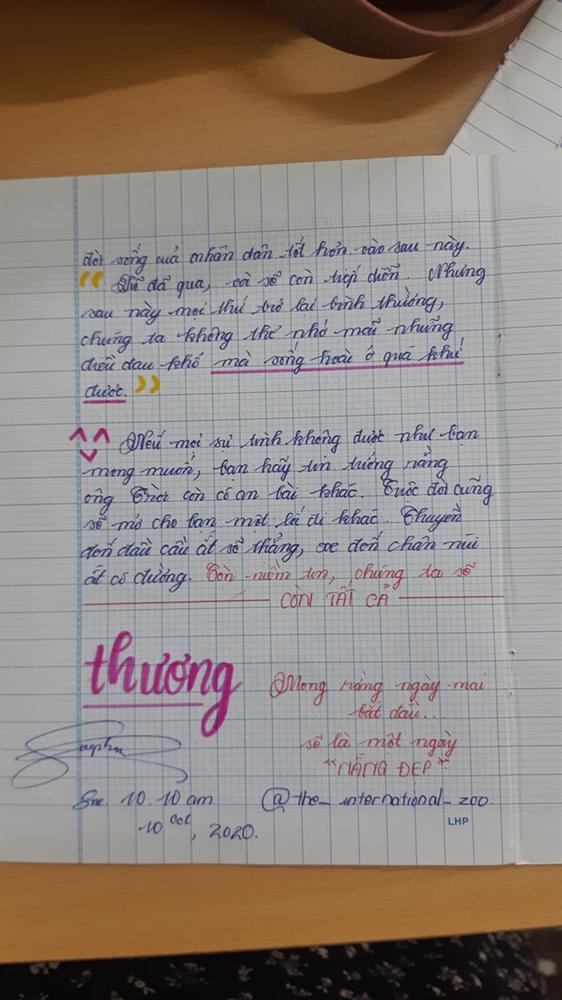 đời sống của nhân dân tốt hơn vào sau này.
“ Dù đã qua, và sẽ còn tiếp diễn. Nhưng
sau này mọi thứ trở lại bình thường,
chúng ta không thể nhớ mãi những
điều đau khổ mà sống hoài ở quá khứ
được. ”
Nếu mọi sự tình không được như bạn
mong muốn, bạn hãy tin tưởng rằng
ông Trời còn có an bài khác. Cuộc đời cũng
sẽ mở cho bạn một lối đi khác. Thuyền
đến đầu cầu ắt sẽ thẳng, xe đến chân núi
ắt có đường. Còn niềm tin, chúng ta sẽ
CÒN TẤT CẢ
thương
Mong rằng ngày mai
bắt đầu...
sẽ là một ngày
"NẮNG ĐẸP"
10.10 am @the_international_zoo.
10 Oct, 2020.
LHP